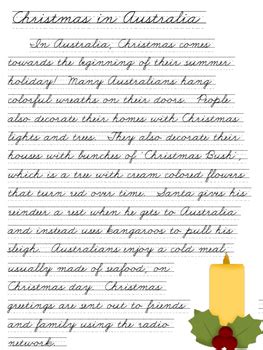 Christmas in Australia
In Australia, Christmas comes
towards the beginning of their summer
holiday! Many Australians hang
colorful wreaths on their doors. People
also decorate their homes with Christmas
lights and trees. They also decorate their
houses with bunches of 'Christmas Bush',
which is a tree with cream colored flowers
that turn red over time. Santa gives his
reindeer a rest when he gets to Australia
and instead uses kangaroos to pull his
sleigh. Australians enjoy a cold meal,
usually made of seafood, on
Christmas day. Christmas
greetings are sent out to friends
and family using the radio
network.